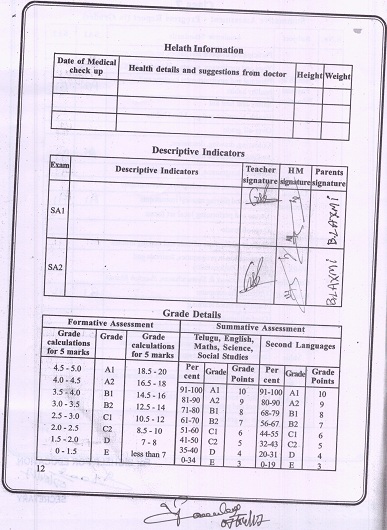 Helath Information
Date of Medical check up Health details and suggestions from doctor Height Weight
Descriptive Indicators
Exam Descriptive Indicators Teacher signature HM signature Parents signature
SA1 B.LAXMI
SA2 B.LAXMI
Grade Details
Formative Assessment Summative Assessment
Grade calculations for 5 marks Grade Grade calculations for 5 marks Telugu, English, Maths, Science, Social Studies Second Languages
Per cent Grade Grade Points Per cent Grade Grade Points
4.5 - 5.0 A1 18.5 - 20 91-100 A1 10 91-100 A1 10
4.0 - 4.5 A2 16.5 - 18 81-90 A2 9 80-90 A2 9
3.5 - 4.0 B1 14.5 - 16 71-80 B1 8 68-79 B1 8
3.0 - 3.5 B2 12.5 - 14 61-70 B2 7 56-67 B2 7
2.5 - 3.0 C1 10.5 - 12 51-60 C1 6 44-55 C1 6
2.0 - 2.5 C2 8.5 - 10 41-50 C2 5 32-43 C2 5
1.5 - 2.0 D 7 - 8 35-40 D 4 20-31 D 4
0 - 1.5 E less than 7 0-34 E 3 0-19 E 3
12